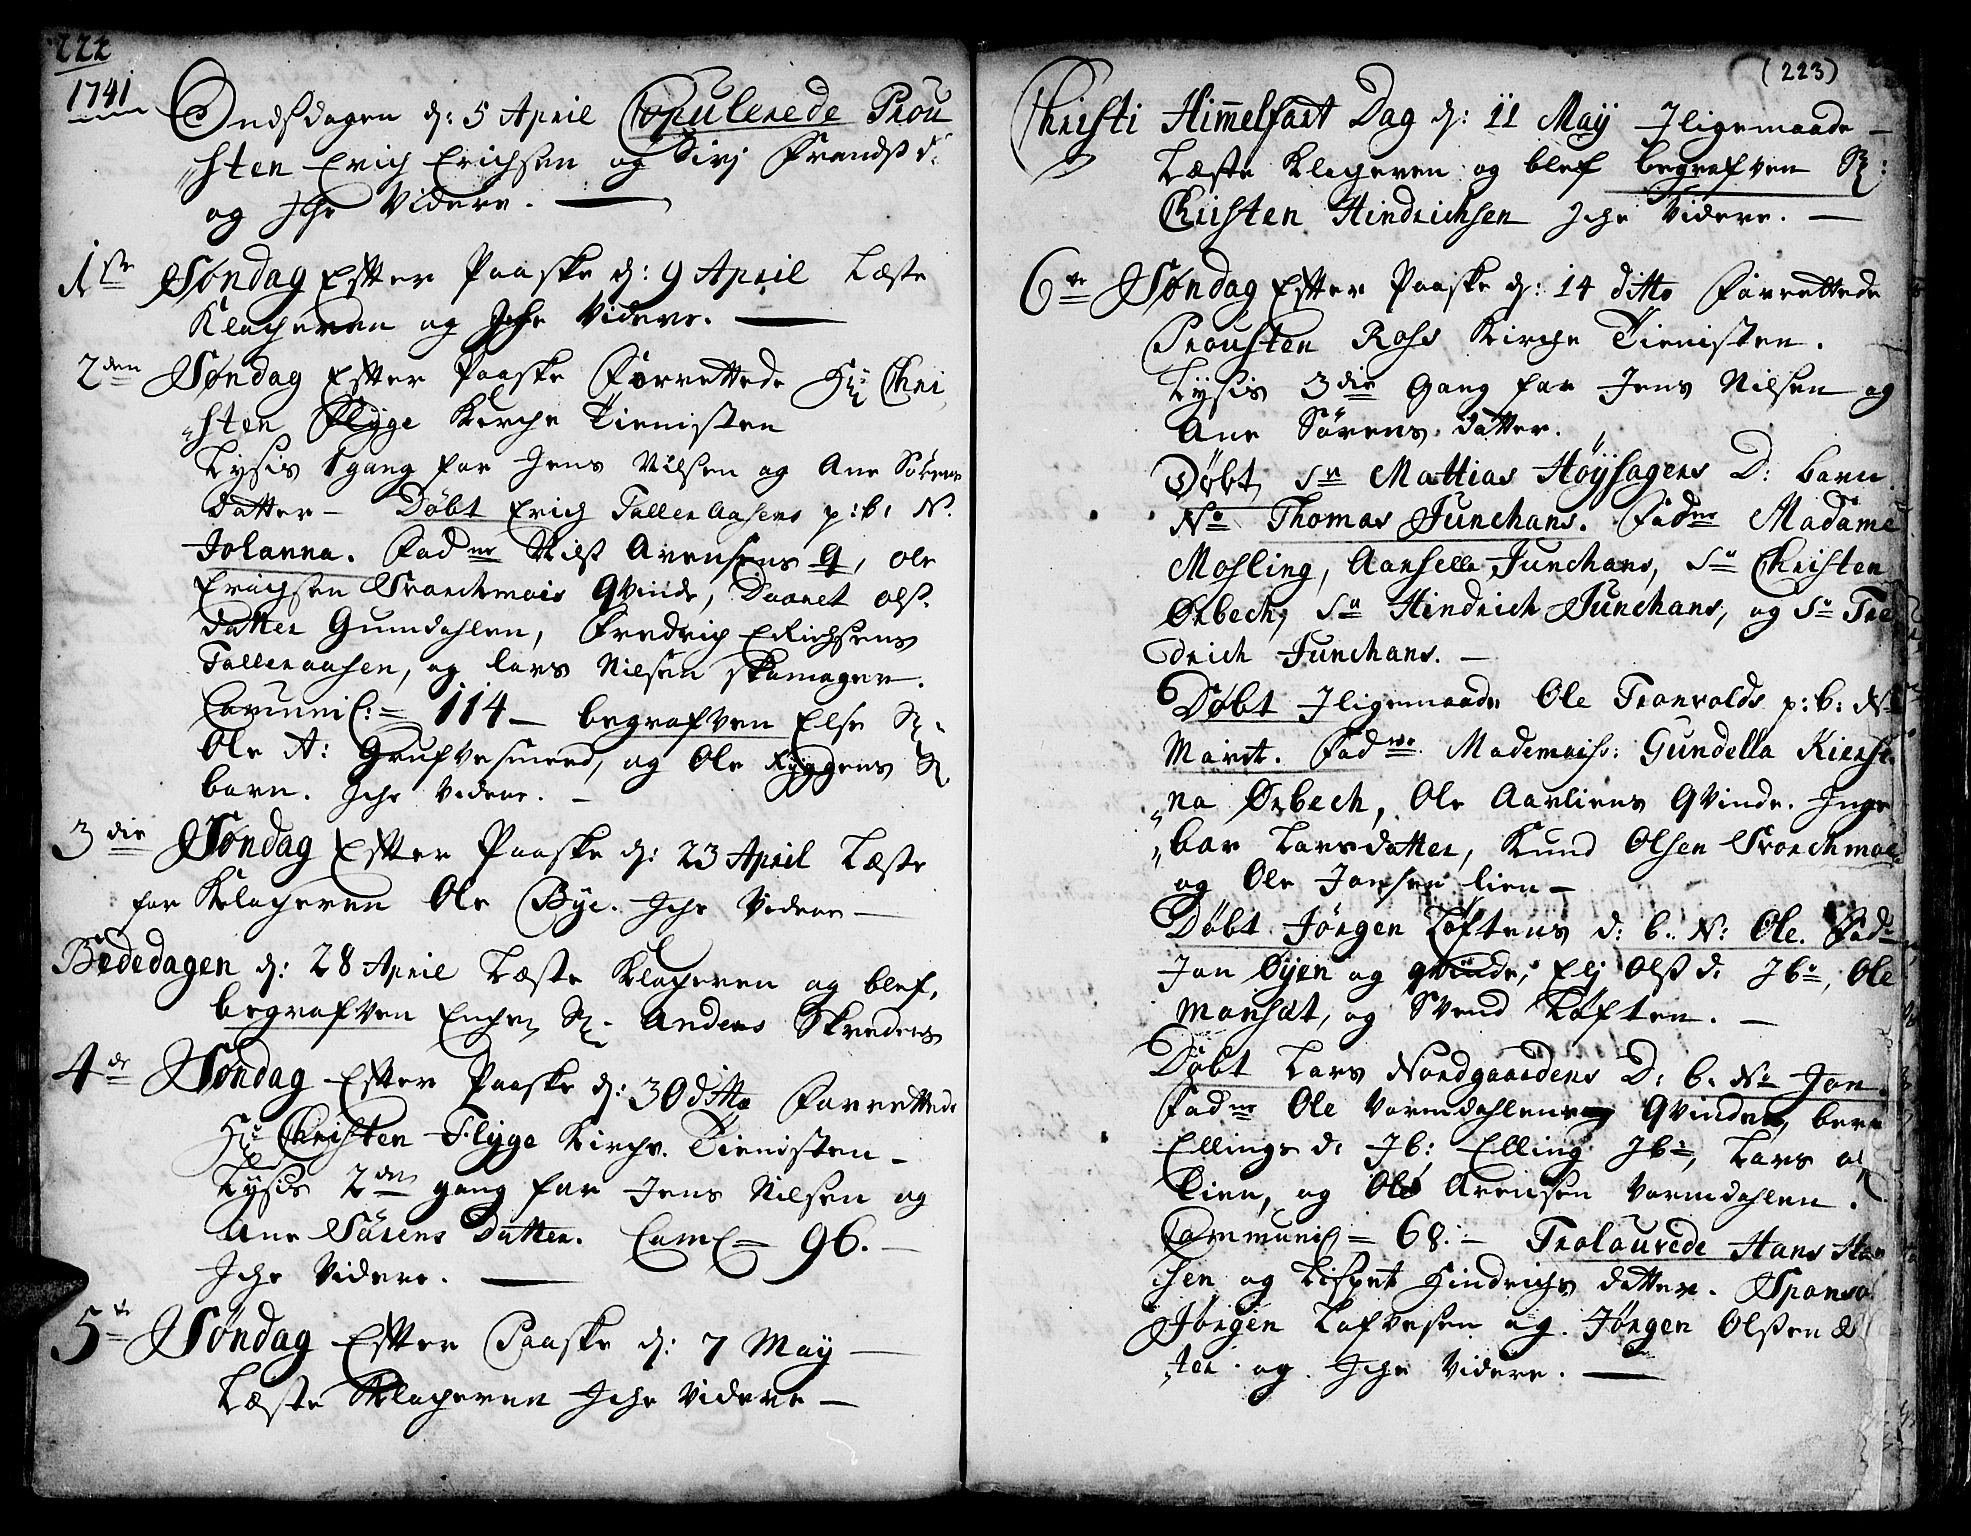 222
1741
Ondsdagen d: 5 April Copulerede Prou
sten Erich Erichsen og Sirj Frands d.
og Iche Videre.
1ste Søndag Efter Paaske d: 9 April Læste
Klocheren og Iche Videre.
2den Søndag Efter Paaske Forrettede Hr Chri
sten Flyge Kirche Tienisten
Lysis 1 gang for Jens Nilsen og Ane Sørens
datter - Døbt Erich Talleraasens p: b: N.
Johanna. Fadne Nils Arensens q, Ole
Erichsen Svorchmois Qvinde, Daaret Ols.
datter Gumdahlen, Fredrich Erichsens
Talleraasen, og Lars Nilsen skomager.
Comunic: = 114 - begrafven Else
Ole A: Grufvesmeed, og Ole Ryggens
barn. Iche videre. -
3die Søndag Efter Paaske d: 23 April Læste
for Klocheren Ole Bye. Iche Videre -
Bededagen d: 28 April Læste Klocheren og blef,
begrafven Enchen Anders Skreders
4de Søndag Efter Paaske d: 30 ditto Forrettede
Hr Christen Flyge Kirche Tienisten -
Lysis 2den gang for Jens Nilsen og
Ane Sørens Datter. Com = 96. -
Iche Videre.
5te Søndag Efter Paaske d: 7 May -
Læste Klocheren Iche Videre -
(223)
Christi Himmelfart Dag d: 11 May Iligemaade -
Læste Klocheren og blef begrafven
Christen Hindrichsen Iche Videre. -
6te Søndag Efter Paaske d: 14 ditto Forrettede
Prousten Rohs Kirche Tienisten.
Lysis 3die Gang for Jens Nilsen og
Ane Sørens datter.
Døbt Sr Mattias Höysagers D: barn
No Thomas Junchans. Fadne Madame
Mosling, Aanselle Junchans, Sr Christen
Ørbech, Sr Hindrich Junchans, og Sr Fre
drich Junchans. -
Døbt Iligemaade Ole Tronvolds p: b: N
Marit. Fadne Mademois: Gundella Kierst
na Ørbech, Ole Aarliens Qvinde. Inge
bor Larsdatter, Knud Olsen Svorchmoe
og Ole Jonsen lien -
Døbt Jörgen Løftens d: b. N: Ole. Fad
Jon Øyen og qvinde, Elj Ols d: Ib, Ole
Monsat, og Svend Løften. -
Døbt Lars Nordgaardens D: b. No Jon.
Fadne Ole Vormdahlen og Qvinden, bere
Ellings d: Ib: Elling Ib, Lars
Lien, og Ole Arensen Vormdahlen.
Communic = 68. - Trolourede Hans
sen og Lispet Hindrichs datter. Sponso
Jörgen Lofvesen og. Jörgen Olsen
ter. og. Iche Videre.